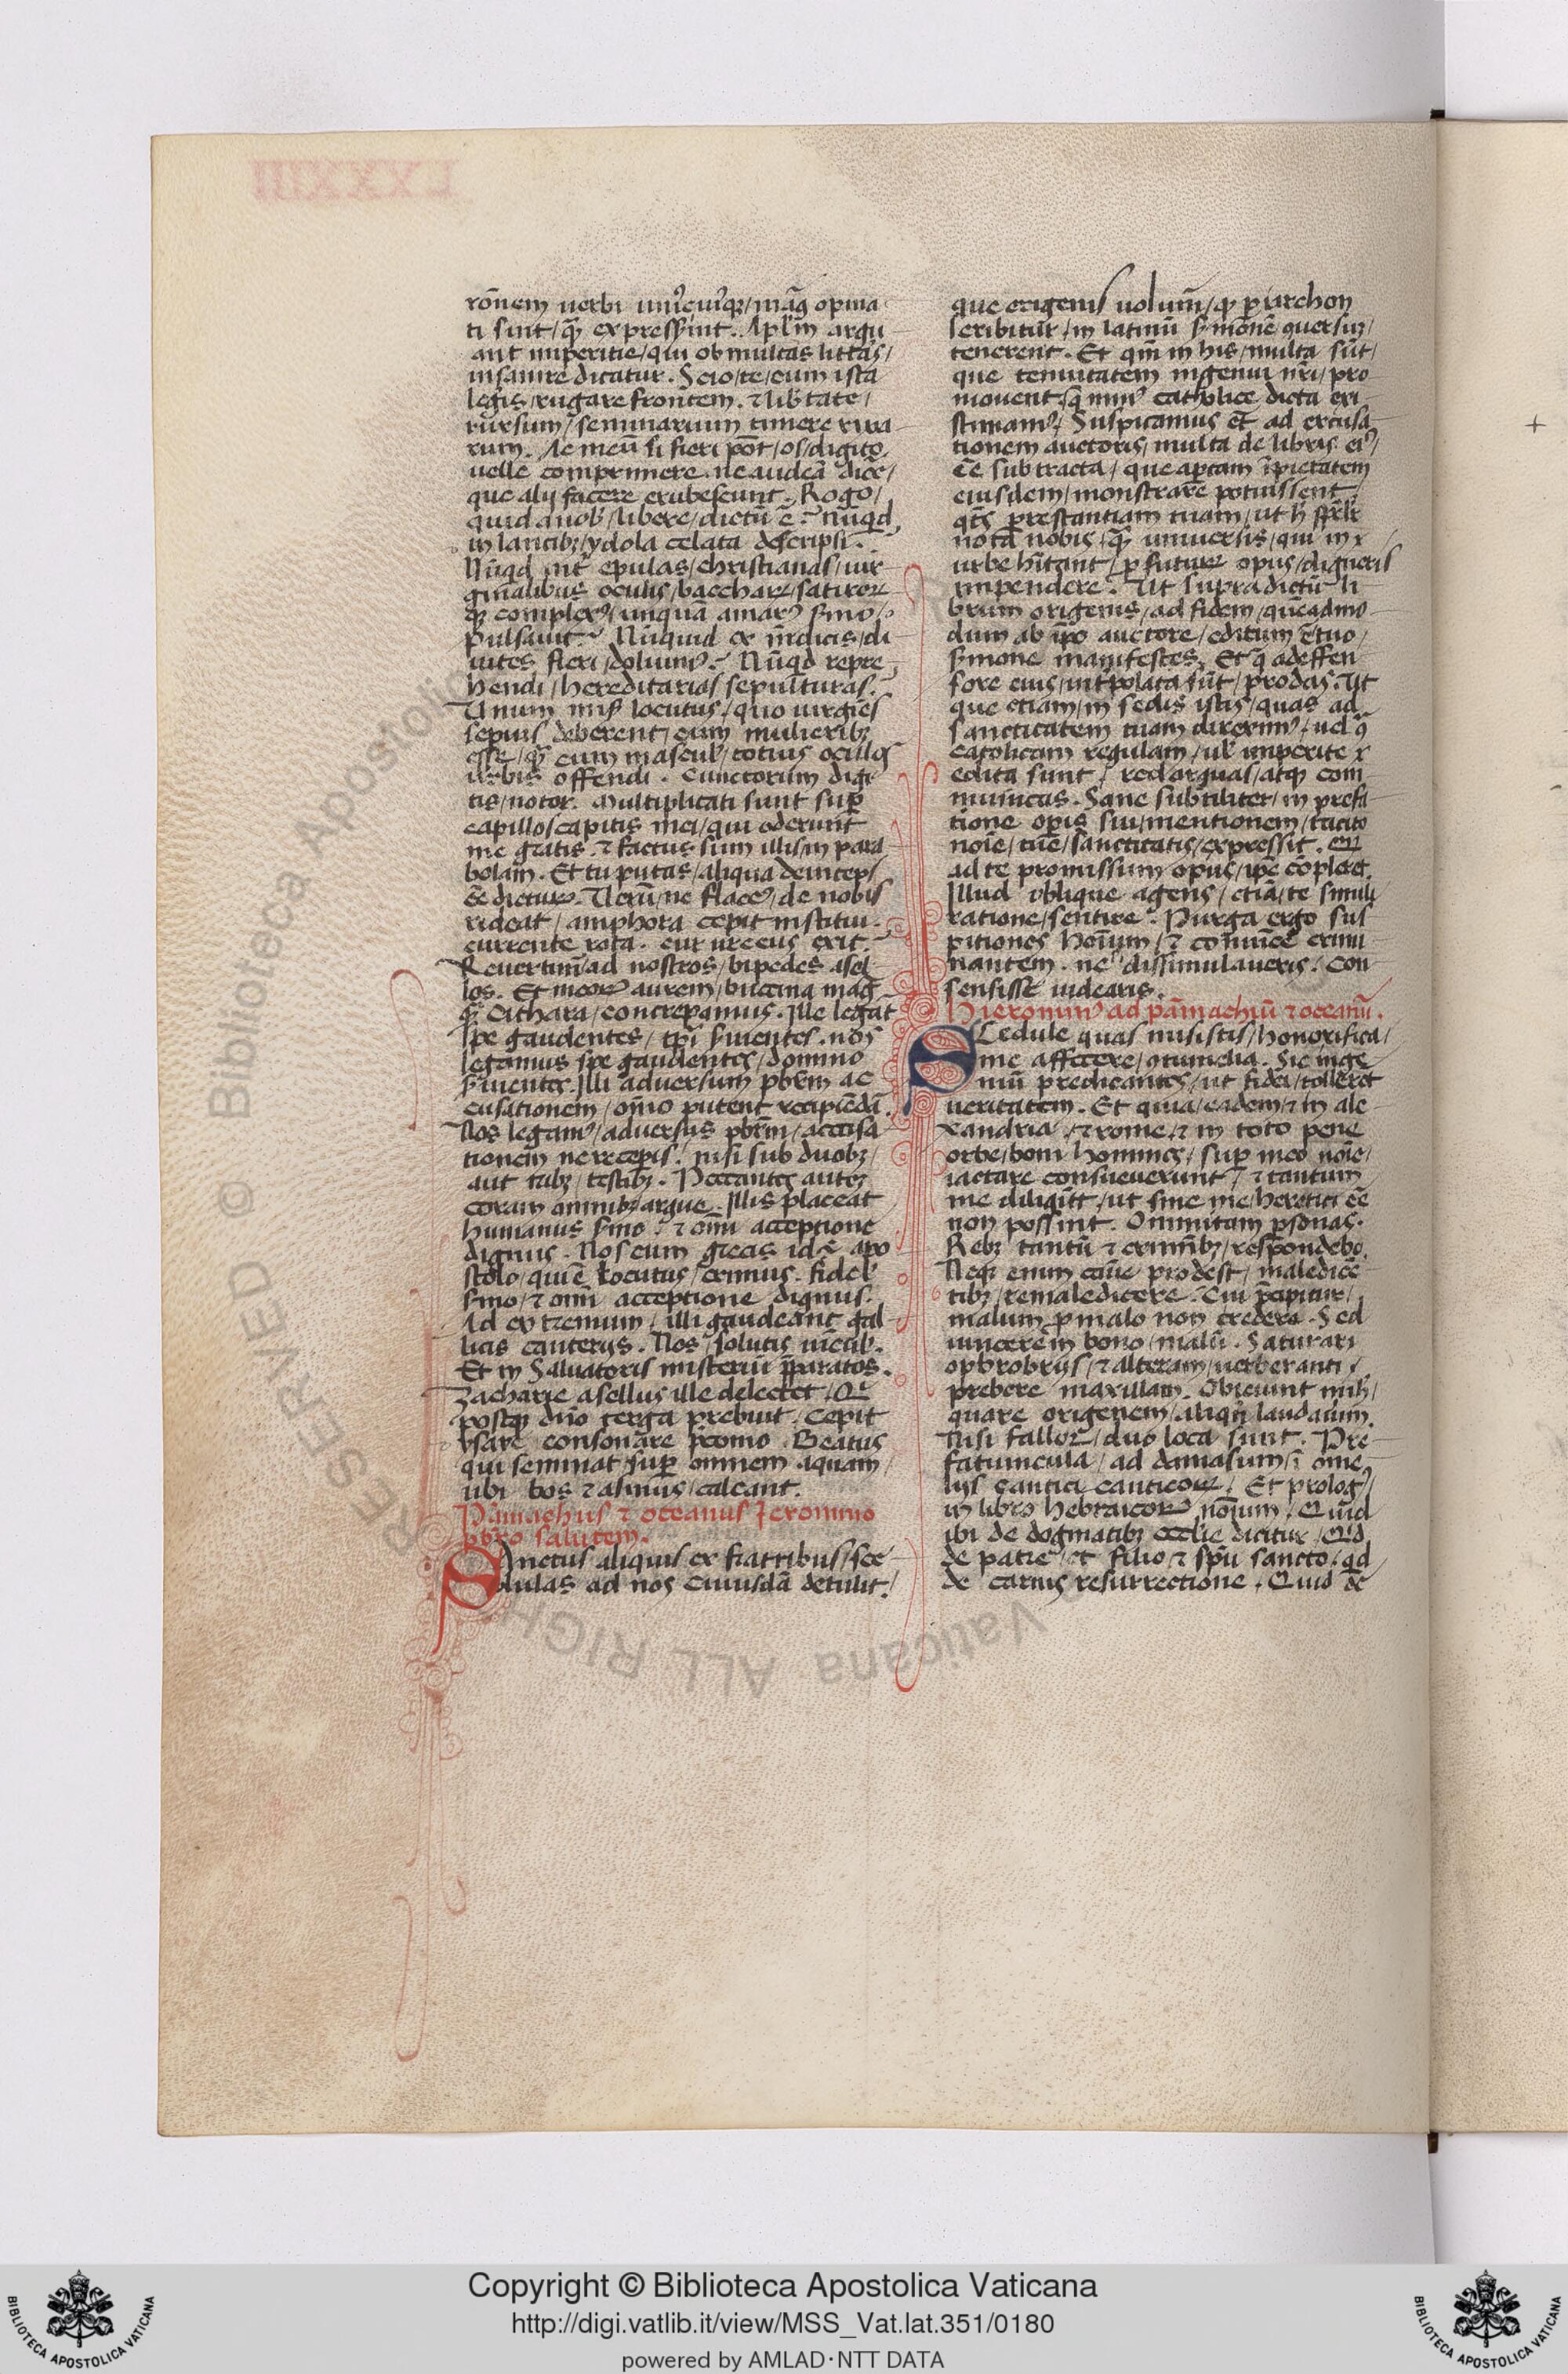 LXXXIII
rōnem uerbi uniꝰcuiꝰqꝫ/mag̃ opina
ti sint/q̃ʒ expresserint. Aplm̄ argu
ant imperitie/qui ob multas litt̃as/
insanire dicatur. Scio/te/cum ista
legis/rugare frontem. ⁊ lib̃tate/
rursum/seminarium timere rixa
rum. Ac meū si fieri pōt/os/digito
uelle comprimere. ne audeā dice᷑/
que alij facere erubescunt. Rogo/
quid a nob̵/libere/dictū ē? nūqd
in lancibꝫ/ydola celata descripsi?
Nūqd int̃ epulas/christianas/uir
ginalibus oculis/bacchaꝝ/satiroꝝ
qꝫ complexꝰ/unquā amarꝰ s̃mo/
pulsauit? Nūquid ex m̄dicis/di
uites fieri/doluimꝰ? Nūqd repre
hendi/hereditarias sepulturas?
Unum mis̃ locutus/quo uirgīes
sepius deberent/cum mulieribꝫ
esse/qʒ cum masculꝭ/totius oculos
urbis offendi. Cunctorum digi
tis/notor. Multiplicati sunt sup̱
capillos capitis mei/qui oderunt
me gratis. ⁊ factus sum illis/in para
bolam. Et tu putas/aliqua deinceps
ēē dicturꝰ. Uerū/ne flaccꝰ/de nobis
rideat/amphora cepit institui.
currente rota. cur urceus exit?
Reuertim̃/ad nostros/bipedes asel
los. Et in eoꝝ aurem/buccina mag̃
qʒ cithara/concrepamus. Ille legāt
spe gaudentes/tp̄i s̃uientes. nos
legamus spe gaudentes/domino
s̃uientes. Illi aduersum pb̄rm ac
cusationem/om̄o putent recipiēdā.
Nos legamꝰ/aduersus pb̄rm/accusa
tionem ne receperis/nisi sub duobꝫ/
aut tribꝫ/testibꝫ. Peccantes auteꝫ
coram omnibꝫ/argue. Illis placeat
humanus s̃mo/⁊ om̄i acceptione
dignus. Nos cum grecis id ē apo
stolo/qui ē locutus/erimus. fidel̵
s̃mo/⁊ om̄i acceptione dignus.
Ad extremum/illi gaudeant gal
licis canterijs. Nos/solutis uīcul̵.
Et in Saluatoris misteriū p̄paratos.
Zacharie asellus ille delectet/
postqʒ dn̄o terga prebuit/cepit
ysaie consonare p̄conio. Beatus
qui seminat sup̱ omnem aquam/
ubi bos ⁊ asinus/calcant.
Pāmachius ⁊ oceanus Jeronimo
pbr̄o salutem.
SAnctus aliquis ex fratribus/sce
dulas ad nos cuiusdā detulit/
que origenis uolum̄/qʒ p̱iarchon
scribitur/in latinū s̃monē/quersuꝫ/
tenerent. Et qm̄ in his/multa sūt/
que tenuitatem ingenij nr̄i/pro
mouent/q̃ minꝰ catholice dicta exi
stimamꝰ/Suspicamus et̃ ad excusa
tionem auctoris/multa de libris eiꝰ/
ēē subtracta/que apertam īpietatem
eiusdem/monstrare potuissent/
qs̃ prestantiam tuam/ut h̄
nota nobis/q̃ʒ uniuersis/qui in
urbe hītant/profuturꝝ opus/digneris
impendere. Ut supradictū li
brum origenis/ad fidem/quēadmo
dum ab ip̄o auctore/editum ē tuo/
s̃mone manifestes. Et q̄ a deffen
sore eius/int̃polata sūt/prodas. Ut
que etiam/in scedis istis/quas ad
sanctitatem tuam direximꝰ/uel 9̃
catolicam regulam/ul̵ imperite
edita sunt/redarguas/atqꝫ com
munices. Sane subtiliter/in prefa
tione operis sui/mentionem/tacito
noīe/tue/sanctitatis/expressit. q
ad te promissum opus/ip̄e cōpleret.
Illud oblique agens/etiā/te simili
ratione/sentire. Purga ergo sus
pitiones hoīum/⁊ cōuince crimi
nantem. ne/dissimulaueris/con
sensisse uidearis.
Hieronimꝰ ad pāmachiū ⁊ oceanū.
SCedule quas misistis/honorifica/
me affecere/9tumelia. Sic inge
niū predicantes/ut fidei/tolleret
ueritatem. Et quia/eadem/⁊ in ale
xandria/⁊ rome/⁊ in toto pene
orbe/boni homines/sup̱ meo noīe/
iactare consueuerunt/⁊ tantum
me diligūt/ut sine me/heretici ēē
non possint. Omittam p̱sonas.
Rebꝫ tantū ⁊ criminibꝫ/respondebo.
Neqʒ enim cause prodest/maledicē
tibꝫ/remaledicere. Cui p̄cipitur/
malum p̱ malo non reddere. Sed
uincere in bono/malū. Saturari
opbrobrijs/⁊ alteram/uerberanti
prebere maxillam. Obiciunt mih̵/
quare origenem/aliqñ laudarim.
nisi fallor/duo loca sunt. Pre
fatiuncula/ad damasum/ī ome
lijs cantici canticoꝝ/Et prologꝰ/
in libro hebraicoꝝ nom̄um/Quid
ibi de dogmatibꝫ ecclie dicitur/Qd
de patre/et filio ⁊ spū sancto/qd
de carnis resurrectione/Quid de
© Biblioteca Apostolica Vaticana ALL RIGHTS RESERVED
Copyright © Biblioteca Apostolica Vaticana
http://digi.vatlib.it/view/MSS_Vat.lat.351/0180
powered by AMLAD·NTT DATA
BIBLIOTECA APOSTOLICA VATICANA
BIBLIOTECA APOSTOLICA VATICANA